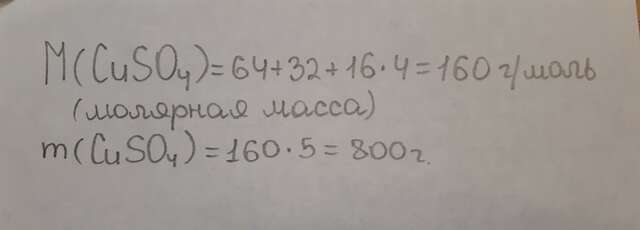 M(CuSO₄)=64+32+16·4=160 г/моль
(молярная масса)
m(CuSO₄)=160·5=800г.